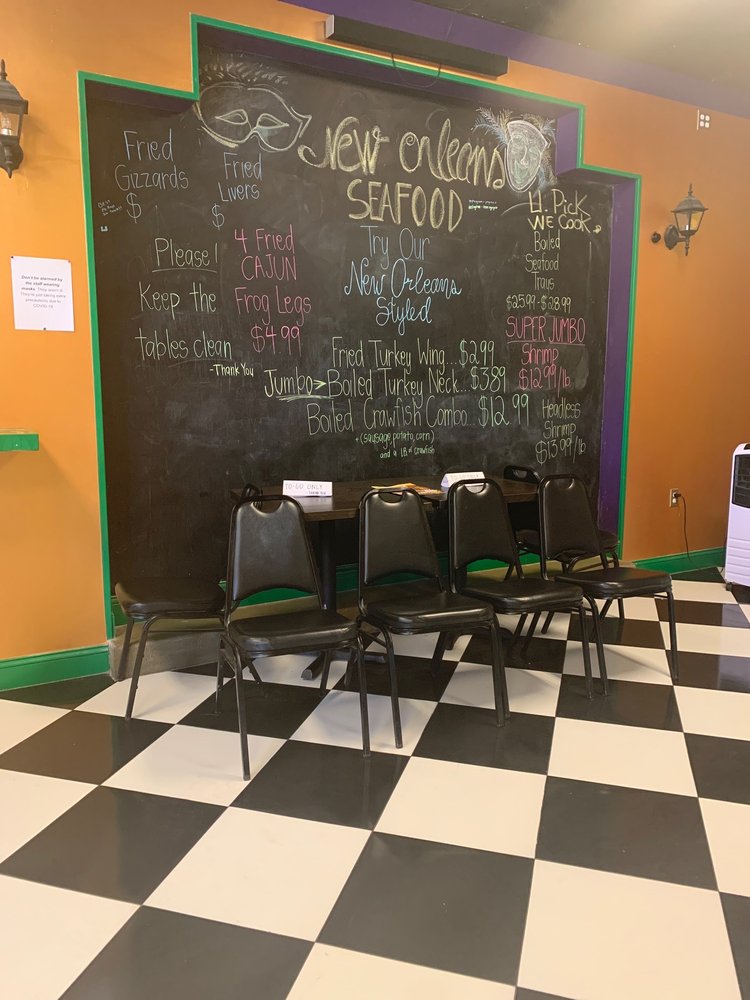 New Orleans
SEAFOOD
Fried
Gizzards
$
Fried
Livers
$
Please!
Keep the
tables clean
-Thank You
4 Fried
CAJUN
Frog Legs
$4.99
Try Our
New Orleans
Styled
Fried Turkey Wing...$2.99
Jumbo> Boiled Turkey Neck...$3.89
Boiled Crawfish Combo...$12.99
+(sausage, potato, corn)
and a LB of crawfish
U. Pick
WE COOK.
Boiled
Seafood
Trays
$25.99-$28.99
SUPER JUMBO
Shrimp
$12.99/lb
Headless
Shrimp
$13.99/lb
Don't be alarmed by
the staff wearing
masks. They aren't ill.
They're just taking extra
precautions due to
COVID-19
TO-GO ONLY